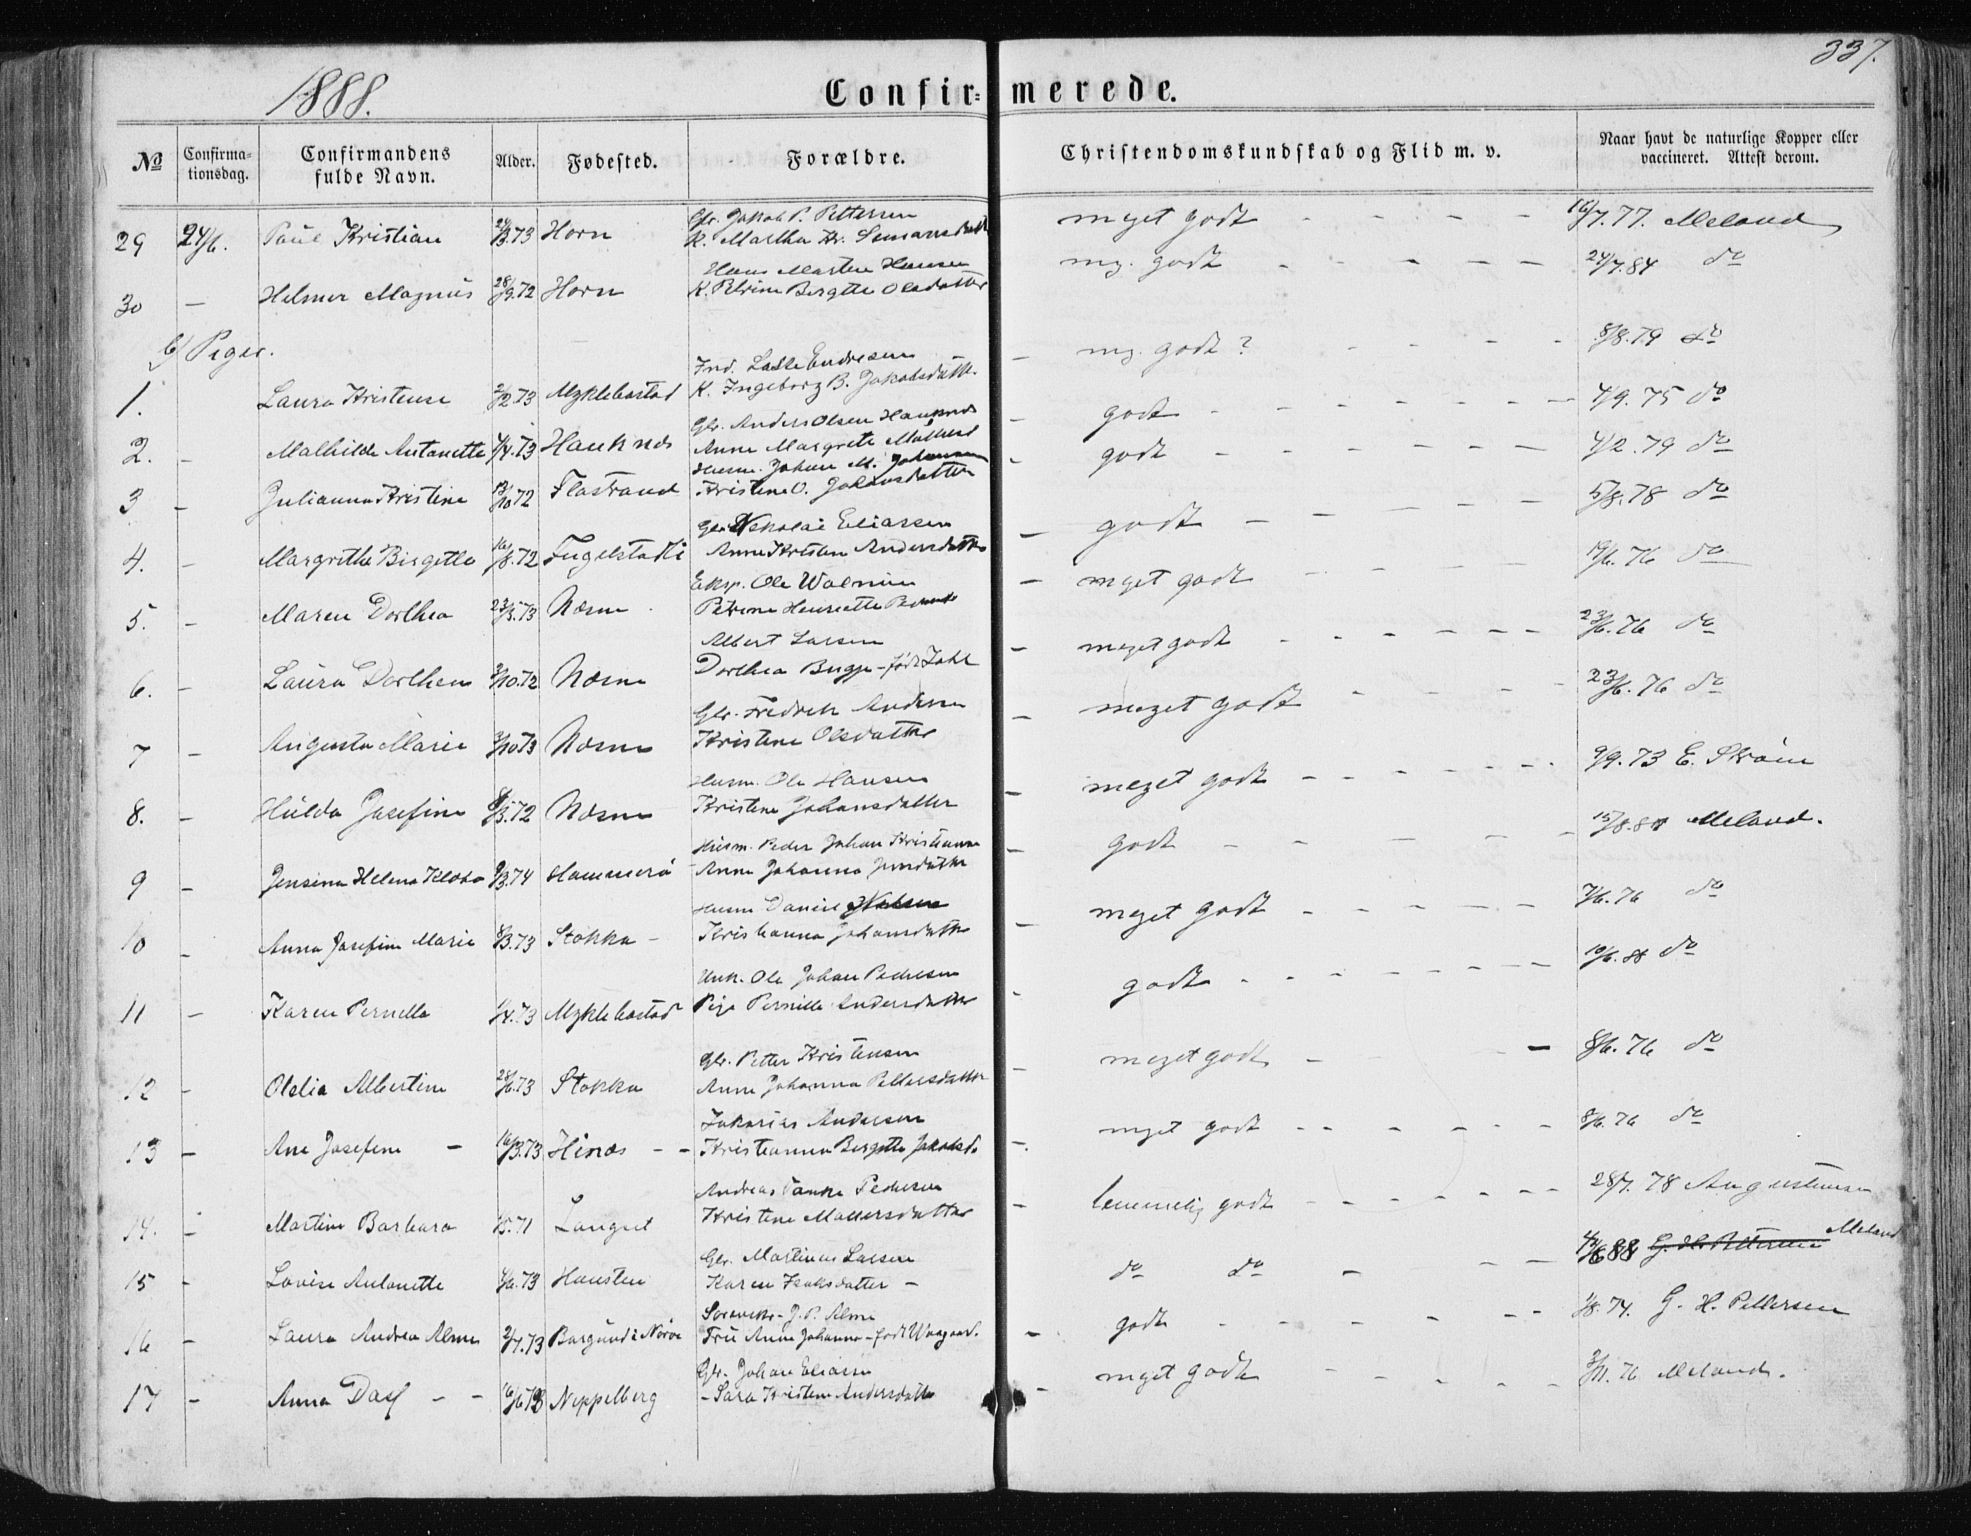 337.
1888.
Confir= merede.
No Confirma-tionsdag. Confirmandens fulde Navn. Alder. Fødested. Forældre. Christendomskundskab og Flid m. v. Naar havt de naturlige Kopper eller vaccineret. Attest derom.
Gbr. Jakob P. Pettersen
29 24/6. Paul Kristian 73 Horn K. Martha meget godt - - - - - 16/7.77. Meland
Hans Morten Hansen
30 - Helmer Magnus 28/9.72 Horn K. Birgitte Olsdatter mg. godt - - - - - 24/7.84 do
b) Piger.
Ind. Lasse Endresen
1. Laura Kristense 73 Myklebostad K. Ingeborg B. Jakobsdatt. - mg. godt? - - - - 8/8.79 do
Gbr. Anders Olsen Hauknes
2. - Mathilde Antonette 4/4.73 Hauknes Anne Margrete - godt - - - - - - 4/9.75 do
Husm. Johan M. Johansen
3 - Julianna Kristine 10.72 Flostrand Kristine O. Johansdatter - godt - - - - - - 4/2.79 do
Gbr. Nikolai Eliassen
4. - Margrethe Birgitte 16/8.72 Fugelstadli Anne Kristine Andersdatter - godt - - - - - 5/8.78 do
Eksp. Ole Walnum
5. - Maren Dorthea 23/5.73 Næsna Petrine Henriette - meget godt - - - - - 19/6.76 do
Albert Larsen
6. - Laura Dorthea 10.72 Næsna Dorthea Bugge - født Dahl - meget godt - - - - - - 23/6.76 do
Gbr. Fredrik Andersen
7 - Augusta Marie 10.73 Næsna Kristine Olsdatter - meget godt - - - - 23/6.76 do
Husm. Ole Hansen
8. - Hulda Josefine 72 Næsna Kristine Johansdatter - meget godt - - - - - - 9/9.73 E. Strøm
Husm. Peder Johan Kristiansen
9 - Jensine Helena 74 Hammerø Anne Johanna Jensdatter - godt - - - - - - 15/8. Meland.
Husm Daniel
10 - Anna Josefine Marie 73 Stokka - Kristianna Johansdatter - meget godt - - - - - 7/6.76 do
Unk. Ole Johan Pedersen
11 - Karen Pernella 73 Myklebostad Pige Pernille Andersdatter - godt - - - - - - - 10/6. do
Gbr. Petter Kristensen
12 - Olelia Albertine 28/6.73 Stokka Anne Johanna Pettersdatter meget godt - - - 8/6.76 do
Zakarias Andersen
13 - Ane Josefine - 16/3.73 Hinæs - - Kristianna Birgitte Jakobsd. - meget godt - - - - - - 8/6.76 do
Andreas Pedersen
14. - Martine Barbara 71 Langset Kristine - temmelig godt - - - - - - 28/7.78 Augustinussen
Gbr. Martinus Larsen
15 - Lovise Antonette 73 Hausten Karen Isaksdatter - do do - - - 88 G. H. Pettersen Meland
J. P. Alme
16 - Laura Andrea Alme 2/7.73 Borgund i Norve Frue Anne Johanna - født Waagaard. - godt - - - - - - 1/8.74. G. H. Pettersen
Gbr. Johan Eliassen
17 - Anna Dass - - 16/6.73 Neppelberg - Sara Kristine Andersdatter - meget godt - - - - - 76 Meland.